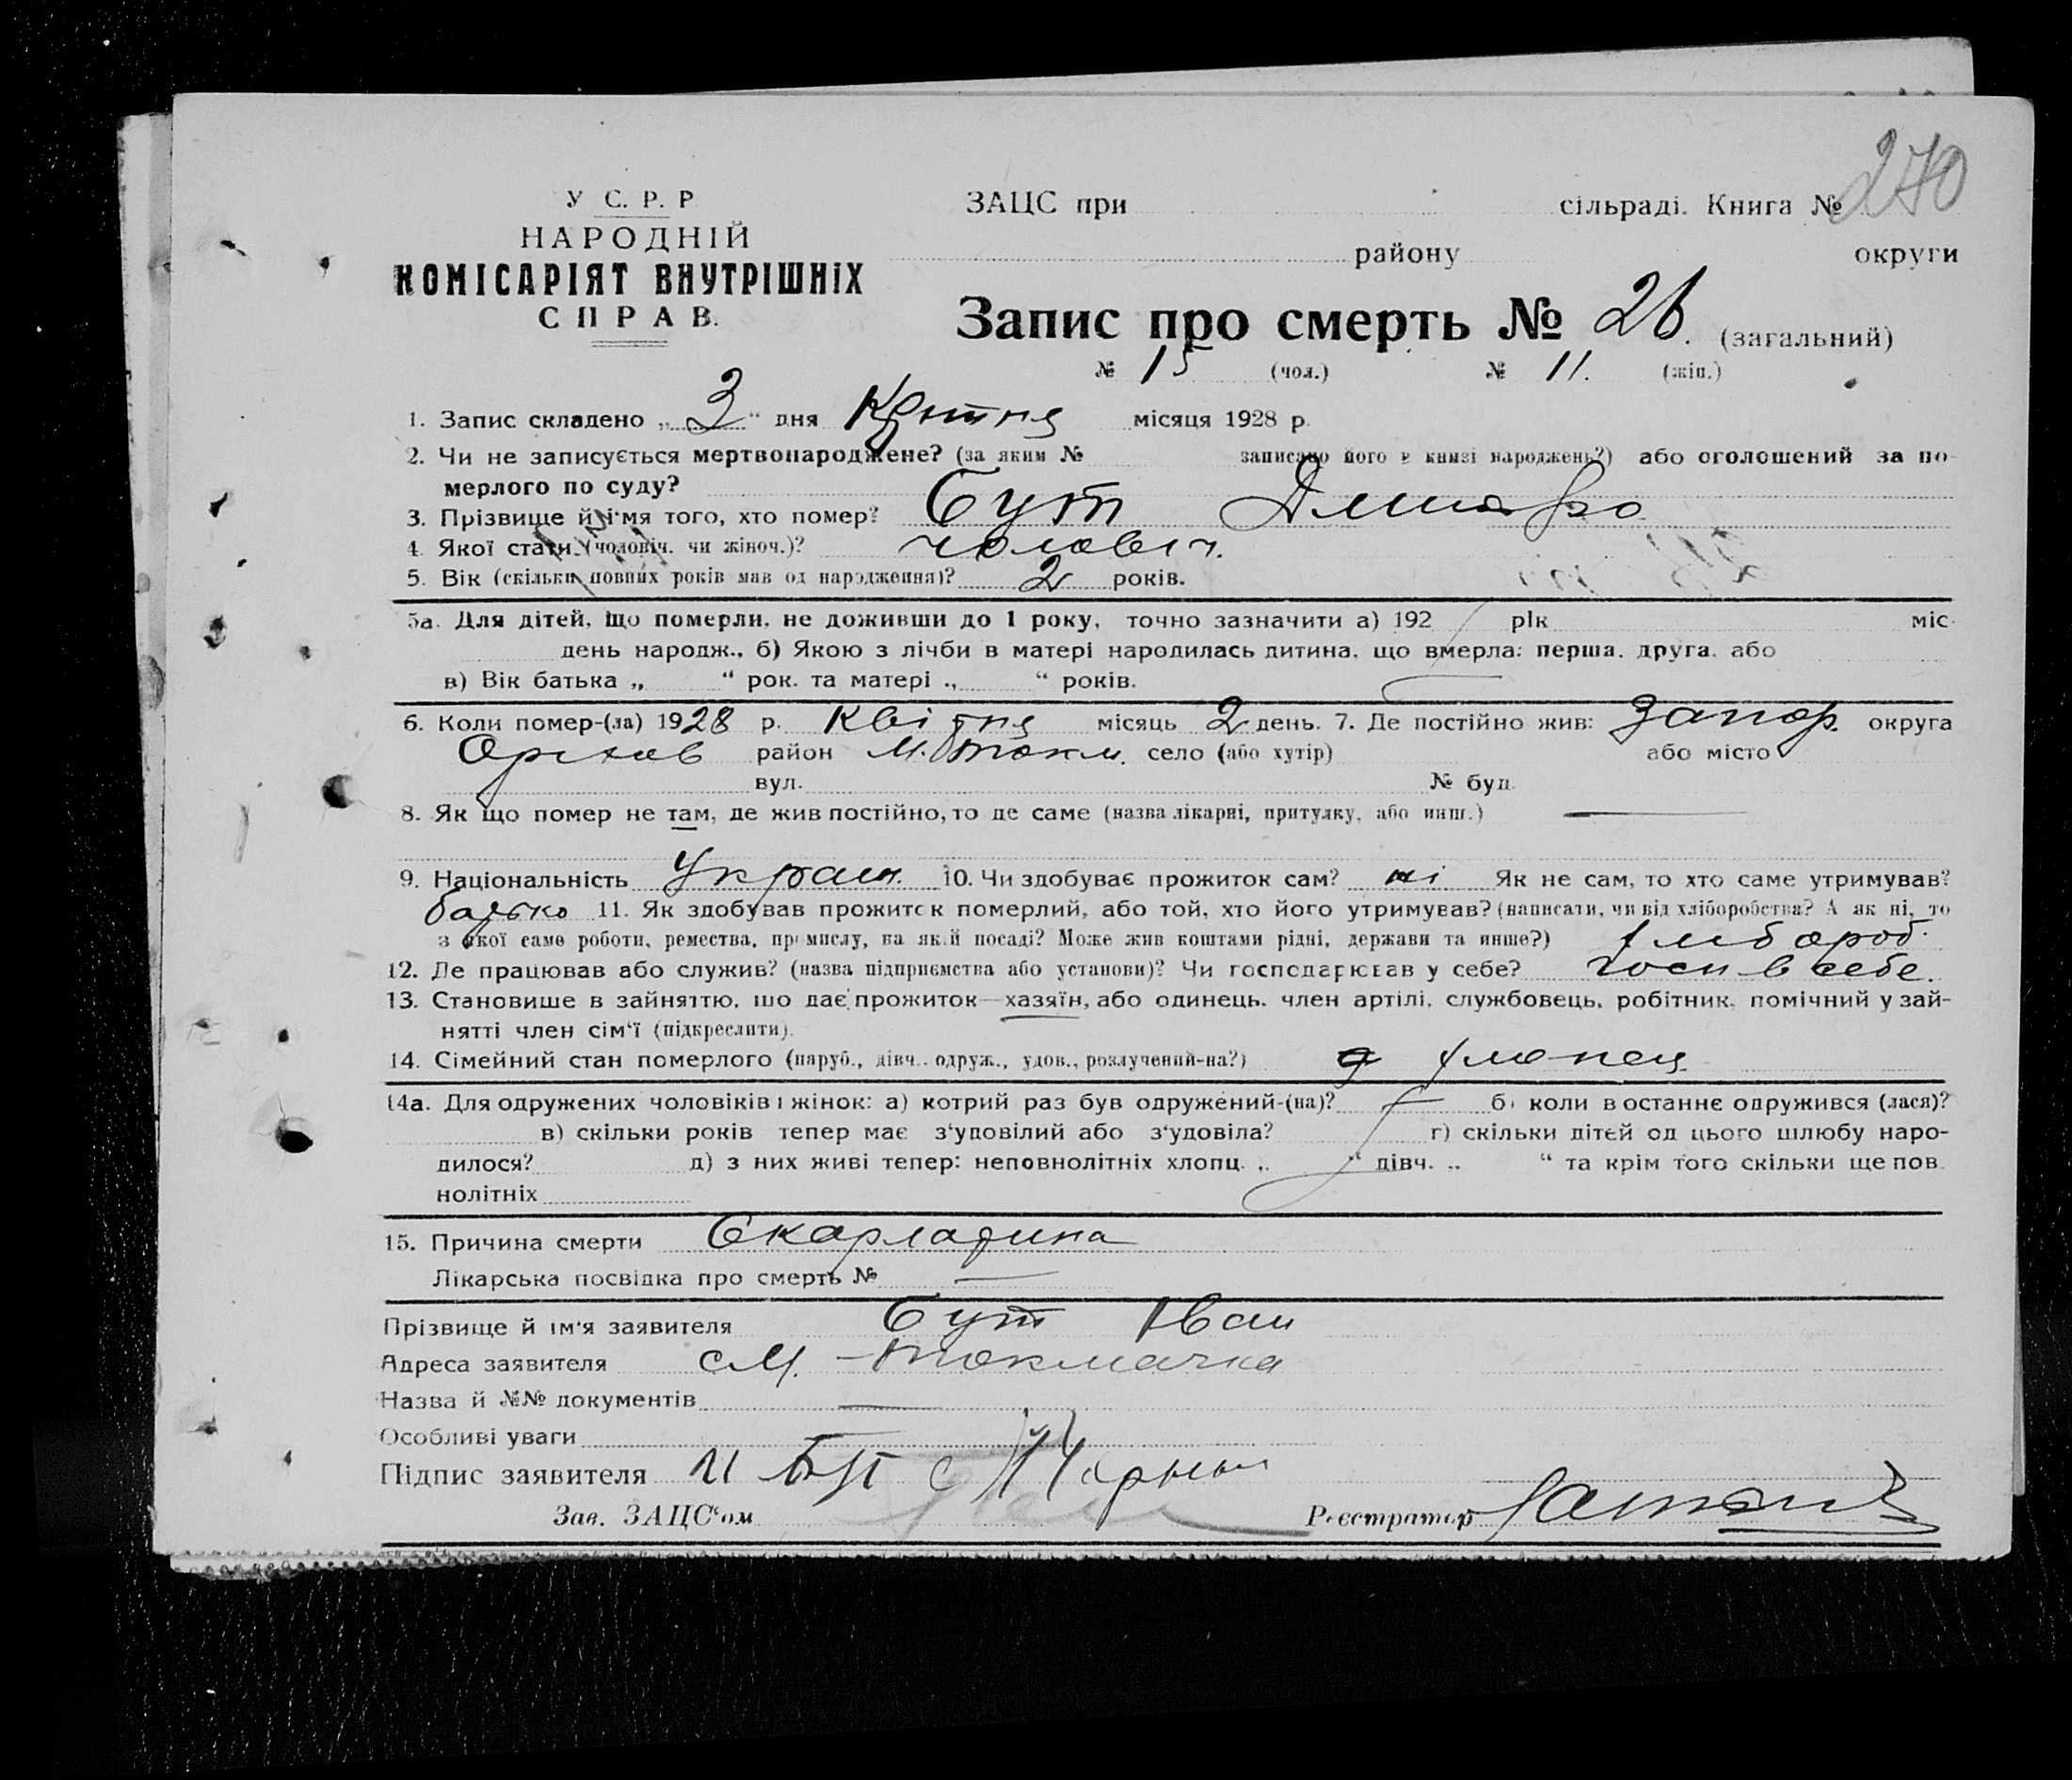 270
У С. Р. Р
НАРОДНІЙ
КОМІСАРІЯТ ВНУТРІШНІХ
СПРАВ.
ЗАЦС при сільраді. Книга №
району округи
Запис про смерть № 26. (загальний)
№ 15 (чол.) № 11. (жін.)
1. Запис складено „3“ дня Квітня місяця 1928 р.
2. Чи не записується мертвонароджене? (за яким № записано його в книзі народжень?) або оголошений за по-
мерлого по суду?
3. Прізвище й ім'я того, хто помер? Бут Дмитро
4. Якої стати (чоловіч. чи жіноч.)? чоловіч.
5. Вік (скільки повних років мав од народження)? 2 років.
5а. Для дітей, що померли, не доживши до 1 року, точно зазначити а) 192 рік міс.
день народж., б) Якою з лічби в матері народилась дитина, що вмерла: перша, друга, або
в) Вік батька „ “ рок. та матері „ “ років.
6. Коли помер-(ла) 1928 р. Квітня місяць 2 день. 7. Де постійно жив: Запор. округа
Оріхов район М. Токм. село (або хутір) або місто
вул. № буд.
8. Як що помер не там, де жив постійно, то де саме (назва лікарні, притулку, або инш.) —
9. Національність Україн. 10. Чи здобуває прожиток сам? ні Як не сам, то хто саме утримував?
батько 11. Як здобував прожиток померлий, або той, хто його утримував? (написати, чи від хліборобства? А як ні, то
з якої саме роботи, ремества, промислу, на якій посаді? Може жив коштами рідні, держави та инше?) хлібороб.
12. Де працював або служив? (назва підприємства або установи)? Чи господарював у себе? госп в себе.
13. Становище в зайняттю, що дає прожиток—хазяїн, або одинець, член артілі, службовець, робітник, помічний у зай-
нятті член сім'ї (підкреслити).
14. Сімейний стан померлого (паруб., дівч., одруж., удов., розлучений-на?) хлопец
14а. Для одружених чоловіків і жінок: а) котрий раз був одружений-(на)? б) коли востаннє одружився (лася)?
в) скільки років тепер має з'удовілий або з'удовіла? г) скільки дітей од цього шлюбу наро-
дилося? д) з них живі тепер: неповнолітніх хлопц. „ “ дівч. „ “ та крім того скільки ще пов.
нолітніх
15. Причина смерти Скарлатина
Лікарська посвідка про смерть № —
Прізвище й ім'я заявителя Бут Іван
Адреса заявителя с М. - Токмачка
Назва й №№ документів —
Особливі уваги
Підпис заявителя И Бут
Зав. ЗАЦС'ом Реєстратор